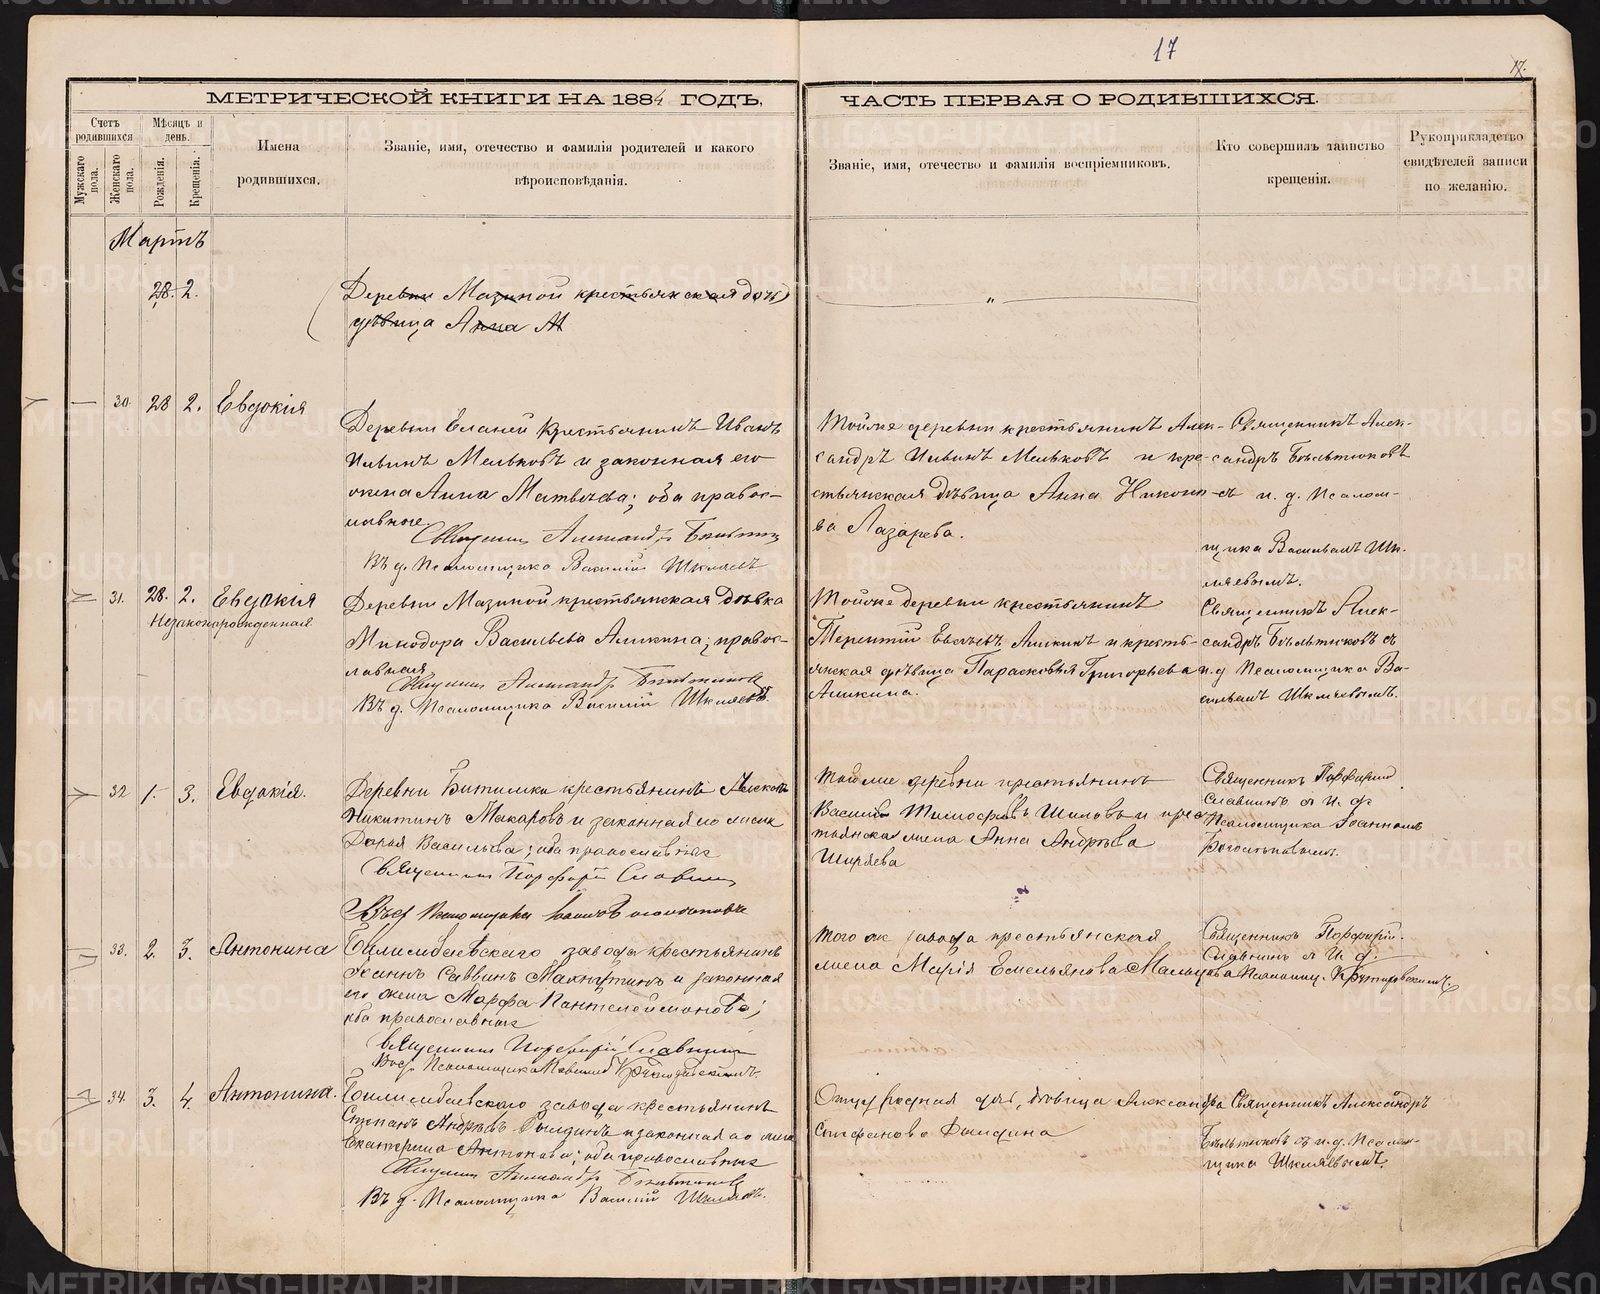 17
17.
МЕТРИЧЕСКОЙ КНИГИ НА 1884 ГОДЪ,
ЧАСТЬ ПЕРВАЯ О РОДИВШИХСЯ.
Счетъ родившихся
Мужскаго пола.
Женскаго пола.
Мѣсяцъ и день.
Рожденія.
Крещенія.
Имена родившихся.
Званіе, имя, отечество и фамилія родителей и какого вѣроисповѣданія.
Званіе, имя, отечество и фамилія воспріемниковъ.
Кто совершилъ таинство крещенія.
Рукоприкладство свидѣтелей записи по желанію.
Мартъ
28. 2.
Деревни Мазиной крестьянская дочь
дѣвица Анна М
30 28 2. Евдокія
Деревни Еланей крестьянинъ Иванъ
Ильинъ Мельковъ и законная его
жена Анна Матвѣева; оба правос-
лавные.
Священникъ Александръ Бѣльтюковъ
Въ д. Псаломщика Василій Шкляевъ
Тойже деревни крестьянинъ Алек-
сандръ Ильинъ Мельковъ и кре-
стьянская дѣвица Анна Никоно-
ва Лазарева.
Священникъ Алек-
сандръ Бѣльтюковъ
съ и. д. Псалом-
щика Василіемъ Шк-
ляевымъ.
31. 28. 2. Евдокія
Незаконнорожденная
Деревни Мазиной крестьянская дѣвка
Минодора Васильева Аликина; правос-
лавная.
Священникъ Александръ Бѣльтюковъ
Въ д. Псаломщика Василій Шкляевъ.
Тойже деревни крестьянинъ
Терентій Евсѣевъ Аликинъ и кресть-
янская дѣвица Парасковья Григорьева
Аликина.
Священникъ Алек-
сандръ Бѣльтюковъ съ
и.д Псаломщика Ва-
силіемъ Шкляевымъ.
32 1. 3. Евдокія.
Деревни Битимки крестьянинъ
Никитинъ Макаровъ и законная его жена
Дарья Васильева; оба православные
Священникъ Порфирій Славнинъ
Въ д Псаломщика
Той же деревни крестьянинъ
Василій Тимофѣевъ Шиловъ и крес
тьянская жена Анна Андрѣева
Ширяева
Священникъ Порфирій
Славнинъ съ И. д
Псаломщика Іоанномъ
33. 2. 3. Антонина
Билимбаевскаго завода крестьянинъ
Іоаннъ Саввинъ Махнутинъ и законная
его жена Марфа Пантелеймонова;
оба православные
Священникъ Порфирій Славнинъ
Того же завода крестьянская
жена Марія Емельянова Мальцева
Священникъ Порфирій.
Славнинъ съ И. д.
34. 3. 4. Антонина.
Билимбаевскаго завода крестьянинъ
Степанъ Андрѣевъ и законная его жена
Екатерина Антонова; оба православные
Священникъ Александръ Бѣльтюковъ
Въ д. Псаломщика Василій Шкляевъ.
Отцу родная дочь, дѣвица Александра
Стефанова
Священникъ Александръ
Бѣльтюковъ съ и.д. Псалом-
щика Шкляевымъ.
METRIKI.GASO-URAL.RU